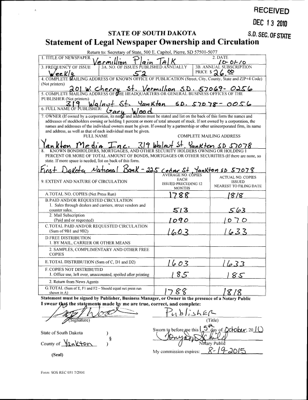 RECEIVED
DEC 13 2010
S.D. SEC. OF STATE
STATE OF SOUTH DAKOTA
Statement of Legal Newspaper Ownership and Circulation
Return to: Secretary of State, 500 E. Capitol, Pierre, SD 57501-5077
1. TITLE OF NEWSPAPER Vermillion Plain Talk
2. DATE 10-01-10
3. FREQUENCY OF ISSUE Weekly
3A. NO. OF ISSUES PUBLISHED ANNUALLY 52
3B. ANNUAL SUBSCRIPTION PRICE $26.00
4. COMPLETE MAILING ADDRESS OF KNOWN OFFICE OF PUBLICATION (Street, City, County, State and ZIP+4 Code)
(Not printers)
201 W. Cherry St. Vermillion SD. 57069-0256
5. COMPLETE MAILING ADDRESS OF THE HEADQUARTERS OR GENERAL BUSINESS OFFICES OF THE
PUBLISHER (Not printers)
319 Walnut St. Yankton SD. 57078-0056
6. FULL NAME OF PUBLISHER: Gary Wood
7. OWNER (If owned by a corporation, its name and address must be stated and also the name and
addresses of stockholders owning or holding 1 percent or more of total amount of stock. If not owned by a corporation, the
names and addresses of the individual owners must be given. If owned by a partnership or other unincorporated firm, its name
and address, as well as that of each individual must be given.
FULL NAME
COMPLETE MAILING ADDRESS
Yankton Media Inc. 319 Walnut St. Yankton SD 57078
8. KNOWN BONDHOLDERS, MORTGAGEES, AND OTHER SECURITY HOLDERS OWNING OR HOLDING 1
PERCENT OR MORE OF TOTAL AMOUNT OF BONDS, MORTGAGES OR OTHER SECURITIES (If there are none, so
state. If more space is needed, list on back of this form.
First Dakota National Bank - 225 Cedar St. Yankton SD 57078
9. EXTENT AND NATURE OF CIRCULATION
AVERAGE NO. COPIES EACH ISSUE PRECEDING 12 MONTHS
ACTUAL NO. COPIES ISSUED NEAREST TO FILING DATE
A. TOTAL NO. COPIES (Net Press Run) 1788 1818
B. PAID AND/OR REQUESTED CIRCULATION
1. Sales through dealers and carriers, street vendors and
counter sales. 513 563
2. Mail Subscription
(Paid and or requested) 1090 1070
C. TOTAL PAID AND/OR REQUESTED CIRCULATION
(Sum of 9B1 and 9B2) 1603 1633
D. FREE DISTRIBUTION
1. BY MAIL, CARRIER OR OTHER MEANS
2. SAMPLES, COMPLIMENTARY AND OTHER FREE
COPIES
E. TOTAL DISTRIBUTION (Sum of C, D1 and D2) 1603 1633
F. COPIES NOT DISTRIBUTED
1. Office use, left over, unaccounted, spoiled after printing 185 185
2. Return from News Agents
G. TOTAL (Sum of E, F1 and F2 - Should equal net press run shown in A) 1788 1818
Statement must be signed by Publisher, Business Manager, or Owner in the presence of a Notary Public
I swear that the statements made by me are true, correct, and complete:
Publisher
(Signature)
(Title)
State of South Dakota )
County of Yankton )
(Seal)
Sworn to before me this 1st day of October, 2010
Notary Public
My commission expires: 8-19-2015
Form: SOS REC 051 7/2003